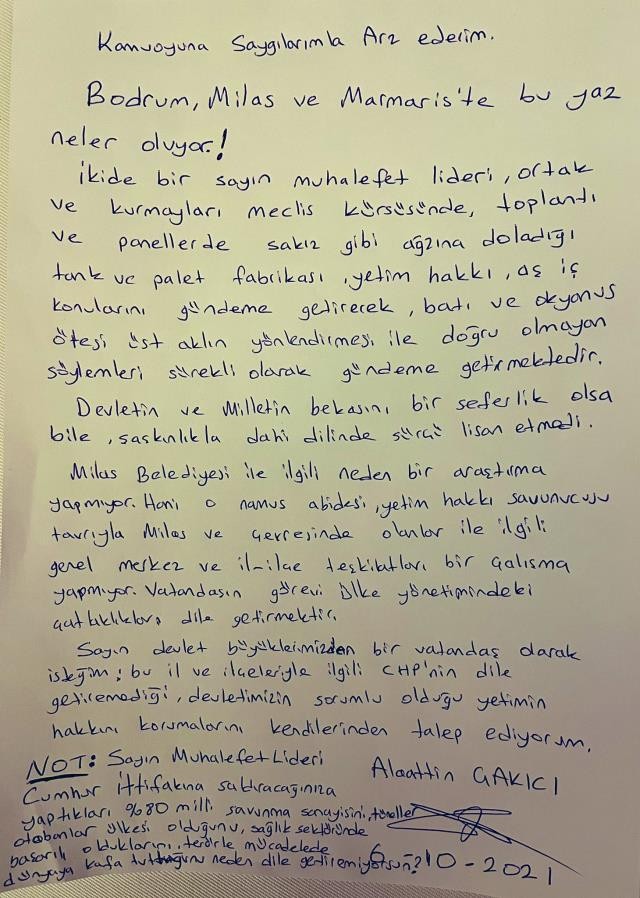 Kamuoyuna Saygılarımla Arz ederim.
Bodrum, Milas ve Marmaris'te bu yaz
neler oluyor.!
İkide bir sayın muhalefet lideri, ortak
ve kurmayları meclis kürsüsünde, toplantı
ve panellerde sakız gibi ağzına doladığı
tank ve palet fabrikası, yetim hakkı, aş iç
konularını gündeme getirecek, batı ve okyanus
ötesi üst aklın yönlendirmesi ile doğru olmayan
söylemleri sürekli olarak gündeme getirmektedir.
Devletin ve Milletin bekasını bir seferlik olsa
bile, şaşkınlıkla dahi dilinde sürçü lisan etmedi.
Milas Belediyesi ile ilgili neden bir araştırma
yapmıyor. Hani o namus abidesi, yetim hakkı savunucusu
tavrıyla Milas ve çevresinde olanlar ile ilgili
genel merkez ve il-ilçe teşkilatları bir çalışma
yapmıyor. Vatandaşın görevi ülke yönetimindeki
çatlaklıkları dile getirmektir.
Sayın devlet büyüklerimizden bir vatandaş olarak
isteğim; bu il ve ilçeleriyle ilgili CHP'nin dile
getiremediği, devletimizin sorumlu olduğu yetimin
hakkını korumalarını kendilerinden talep ediyorum.
NOT: Sayın Muhalefet Lideri
Alaattin ÇAKICI
Cumhur İttifakına saldıracağınıza
yaptıkları %80 milli savunma sanayisini, tüneller
otobanlar ülkesi olduğunu, sağlık sektöründe
başarılı olduklarını, terörle mücadelede
dünyaya kafa tuttuğunu neden dile getiremiyorsun?
6-10-2021